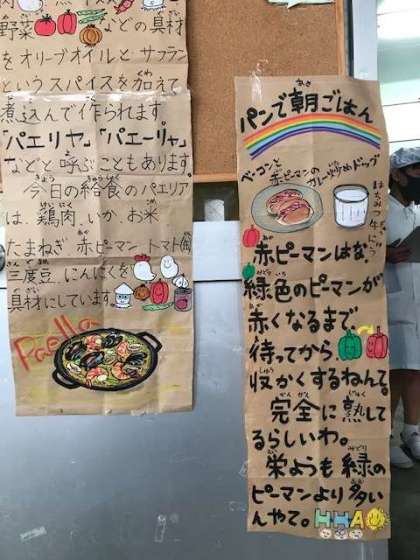 野菜 などの具材
やさい ぐざい
をオリーブオイルとサフラン
というスパイスを加えて
煮込んで作られます。
「パエリヤ」「パエーリャ」
などと呼ぶこともあります。
今日の給食のパエリア
は、鶏肉、いか、お米
たまねぎ 赤ピーマン トマト缶
三度豆、にんにくを
具材にしています。
Paella
パンで朝ごはん
ベーコンと
赤ピーマンのカレー炒めドッグ
赤ピーマンはな、
緑色のピーマンが
赤くなるまで
待ってから、
収かくするねんて。
完全に熟して
るらしいわ。
栄ようも緑の
ピーマンより多い
んやて。